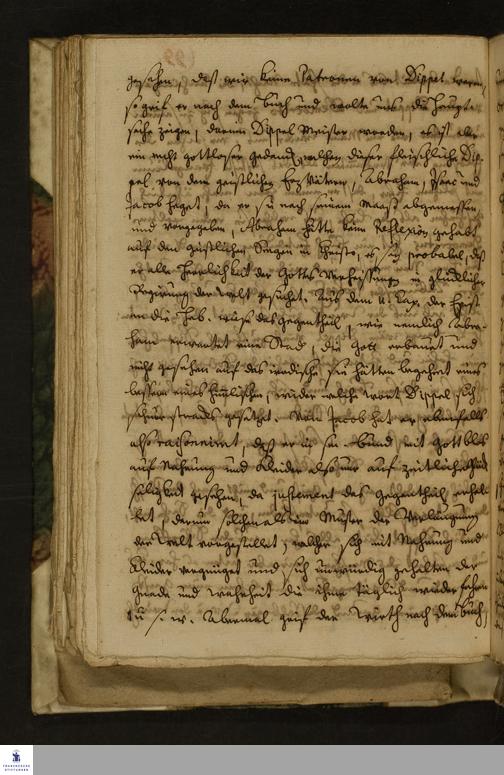 gesehen, daß wir keine Patronen von Dippel waren,
so grif er nach dem Buch und wolte uns die Haupt-
sache zeigen, darum Dippel Meister worden, es ist aber
ein recht gottloser Gedanck, welchen dieser fleischliche Dip-
pel von dem geistlichen Ertzvätern, Abraham, Isaac und
Jacob heget, da er sie nach seinem Maaß abgemessen
und vorgegeben, Abraham hätte keine Reflexion gehabt
auf den geistlichen Seegen in Christo, es sey probabel, daß
er alle Herrlichkeit der Gottes Verheissung in glücklicher
Regierung der Welt gesuchet. Aus dem 11. Cap. der Epist.
an die Heb. weise das Gegentheil, wie nemlich Abra-
ham erwartet eine Stad, die Gott erbauet und
nicht gesehen auf das irrdische, sie hätten begehret eines
bessern eines himlischen, wieder welche wort Dippel sich
schnur stracks gesetzet. Von Jacob hat er ebenfalls
also raisonniret, daß er in sein Bund mit Gott blos
auf Nahrung und Kleider also nur auf zeitliche
seligkeit gesehen, da justement das Gegentheil erhel-
let, darum solcher als ein Muster der Verläugnung
der Welt vorgestellet, welcher sich mit Nahrung und
Kleider vergnüget und sich unwürdig gehalten der
Gnade und Wahrheit die ihme täglich wiederfahren
u. s. w. Abermal grif der Wirth nach dem Buch,
FRANCKESCHE
STIFTUNGEN